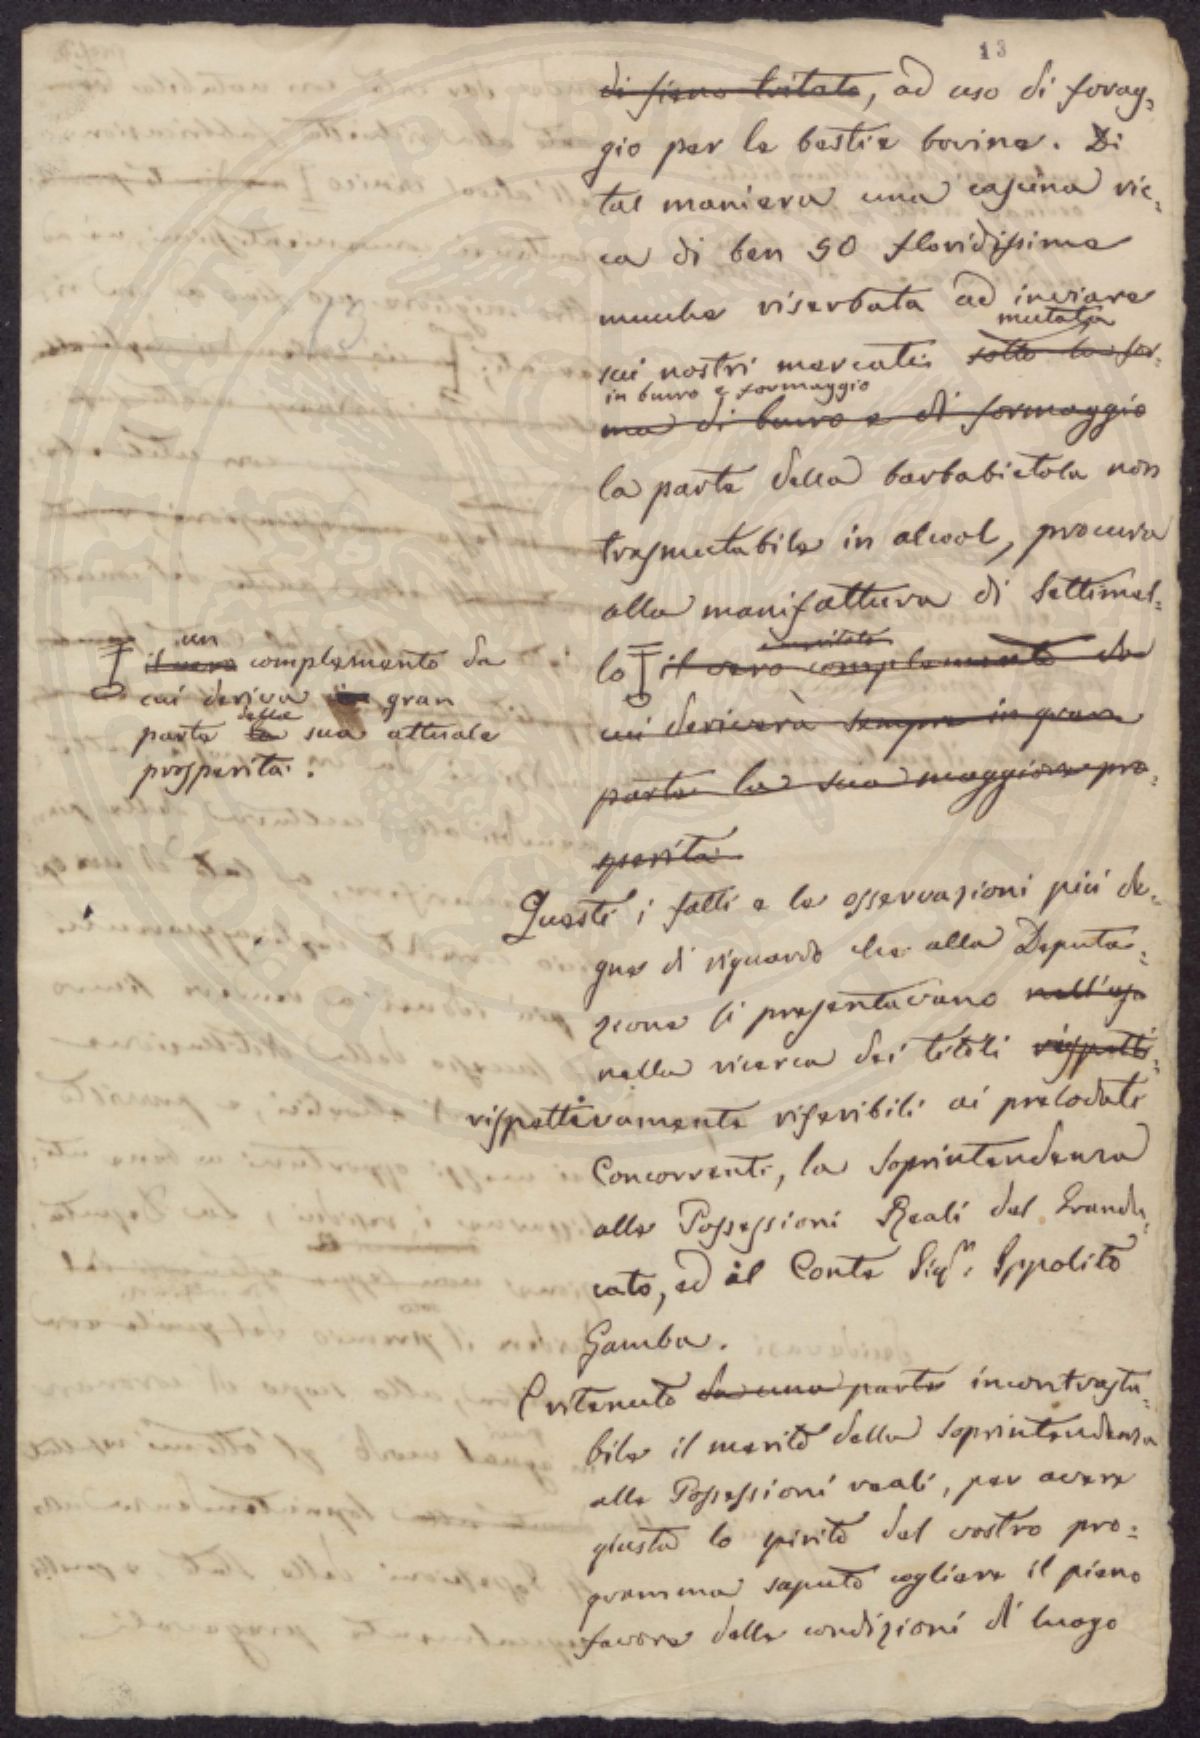 13
di fieno tritato, ad uso di forag=
gio per le bestie bovine. Di
tal maniera una cascina ric=
ca di ben 50 floridissime
mucche riserbata ad inviare
mutata
sui nostri mercati sotto la for=
in burro e formaggio
ma di burro e di formaggio
la parte della barbabietola non
trasmutabile in alcool, procura
alla manifattura di Settimel=
lo il vero complemento da
cui deriverà sempre in gran
parte la sua maggiore pro=
sperità
un
il vero complemento da
cui deriva in gran
della
parte la sua attuale
prosperità.
Questi i fatti e le osservazioni più de=
gne di riguardo che alla Deputa=
zione si presentavano nell'esa
nella ricerca dei titoli rispetti=
rispettivamente riferibili ai prelodati
Concorrenti, la Soprintendenza
alle Possessioni Reali del Grandu=
cato, ed il Conte Sigr. Ippolito
Gamba.
E ritenuto da una parte incontrasta=
bile il merito della Soprintendenza
alle Possessioni reali, per avere
giusta lo spirito del vostro pro=
gramma saputo cogliere il pieno
favore delle condizioni di luogo